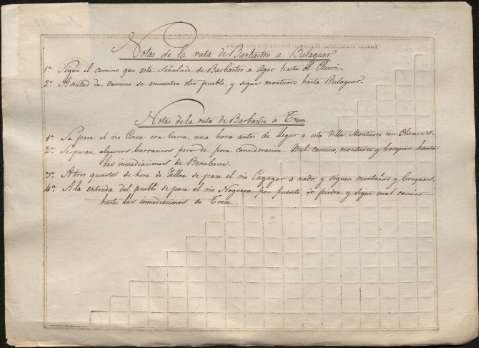 Notas de la ruta de Barbastro a Balaguer.
1ª Sigue el camino que está señalado de Barbastro a Ager hasta el
2ª Al de camino se encuentra otro pueblo, y sigue montuoso hasta Balaguer.
Notas de la ruta de Barbastro a Trem
1ª Se pasa el rio Cinca con barca, una hora antes de llegar a esta Villa Montuoso con Olivares.
2ª Se pasan algunos barrancos pero de poca consideracion. Mal camino, montuoso y hasta
las inmediaciones de Benabarre.
3ª A tres quartos de hora de se pasa el rio a vado, y siguen montañas y
4ª A la entrada del pueblo se pasa el rio Noguera por puente de piedra y sigue mal camino
hasta las inmediaciones de